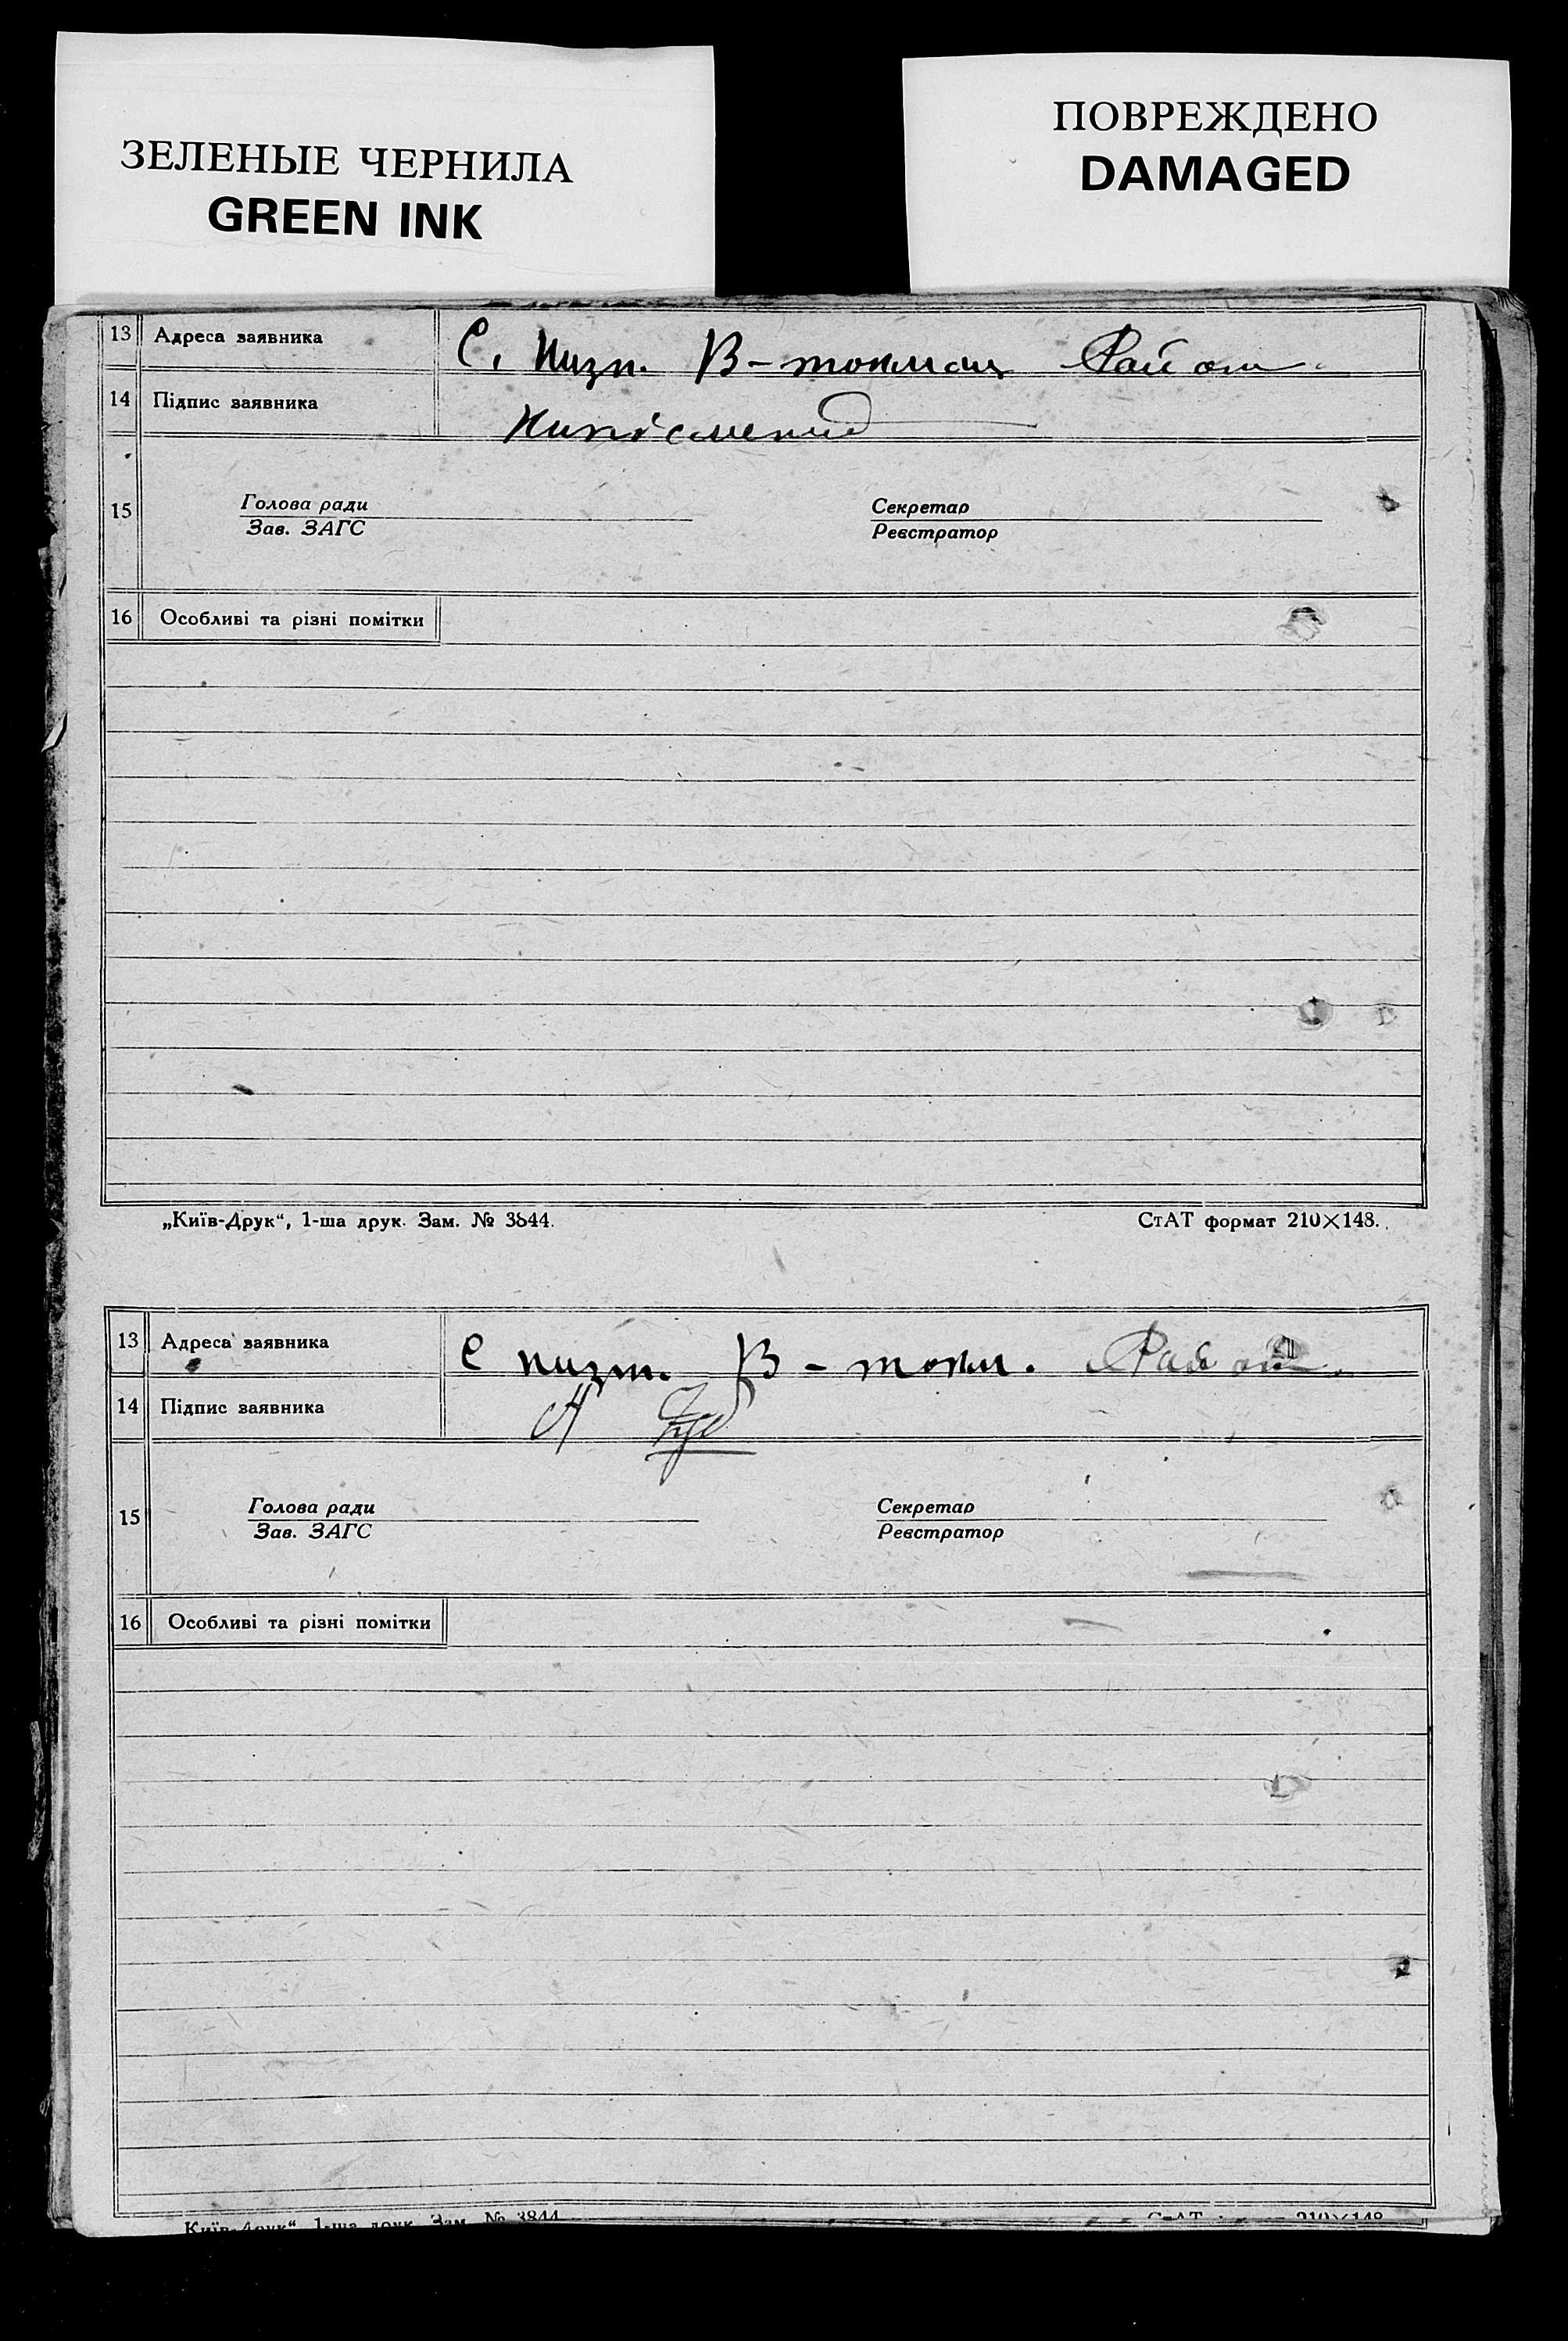 ЗЕЛЕНЫЕ ЧЕРНИЛА
GREEN INK
ПОВРЕЖДЕНО
DAMAGED
13 Адреса заявника С. В-токмац Район
14 Підпис заявника
15 Голова ради Секретар
Зав. ЗАГС Реєстратор
16 Особливі та різні помітки
„Київ-Друк“, 1-ша друк. Зам. № 3844. СтАТ формат 210×148.
13 Адреса заявника С В - токм. Район
14 Підпис заявника
15 Голова ради Секретар
Зав. ЗАГС Реєстратор
16 Особливі та різні помітки
Київ-Друк“, 1-ша друк. Зам. № 3844 СтАТ 210×148